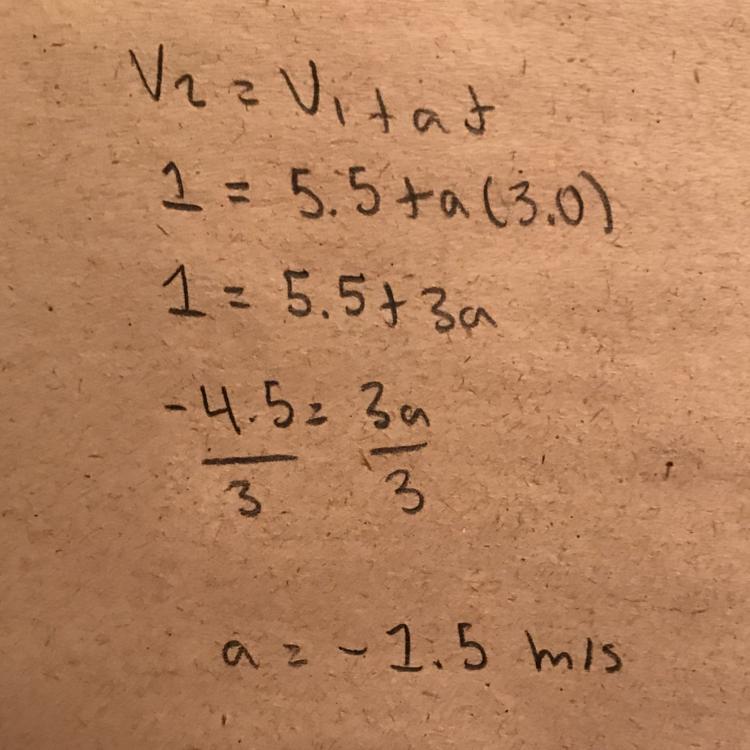 V2 = V1 + at
1 = 5.5 + a(3.0)
1 = 5.5 + 3a
-4.5 = 3a
3 3
a = -1.5 m/s